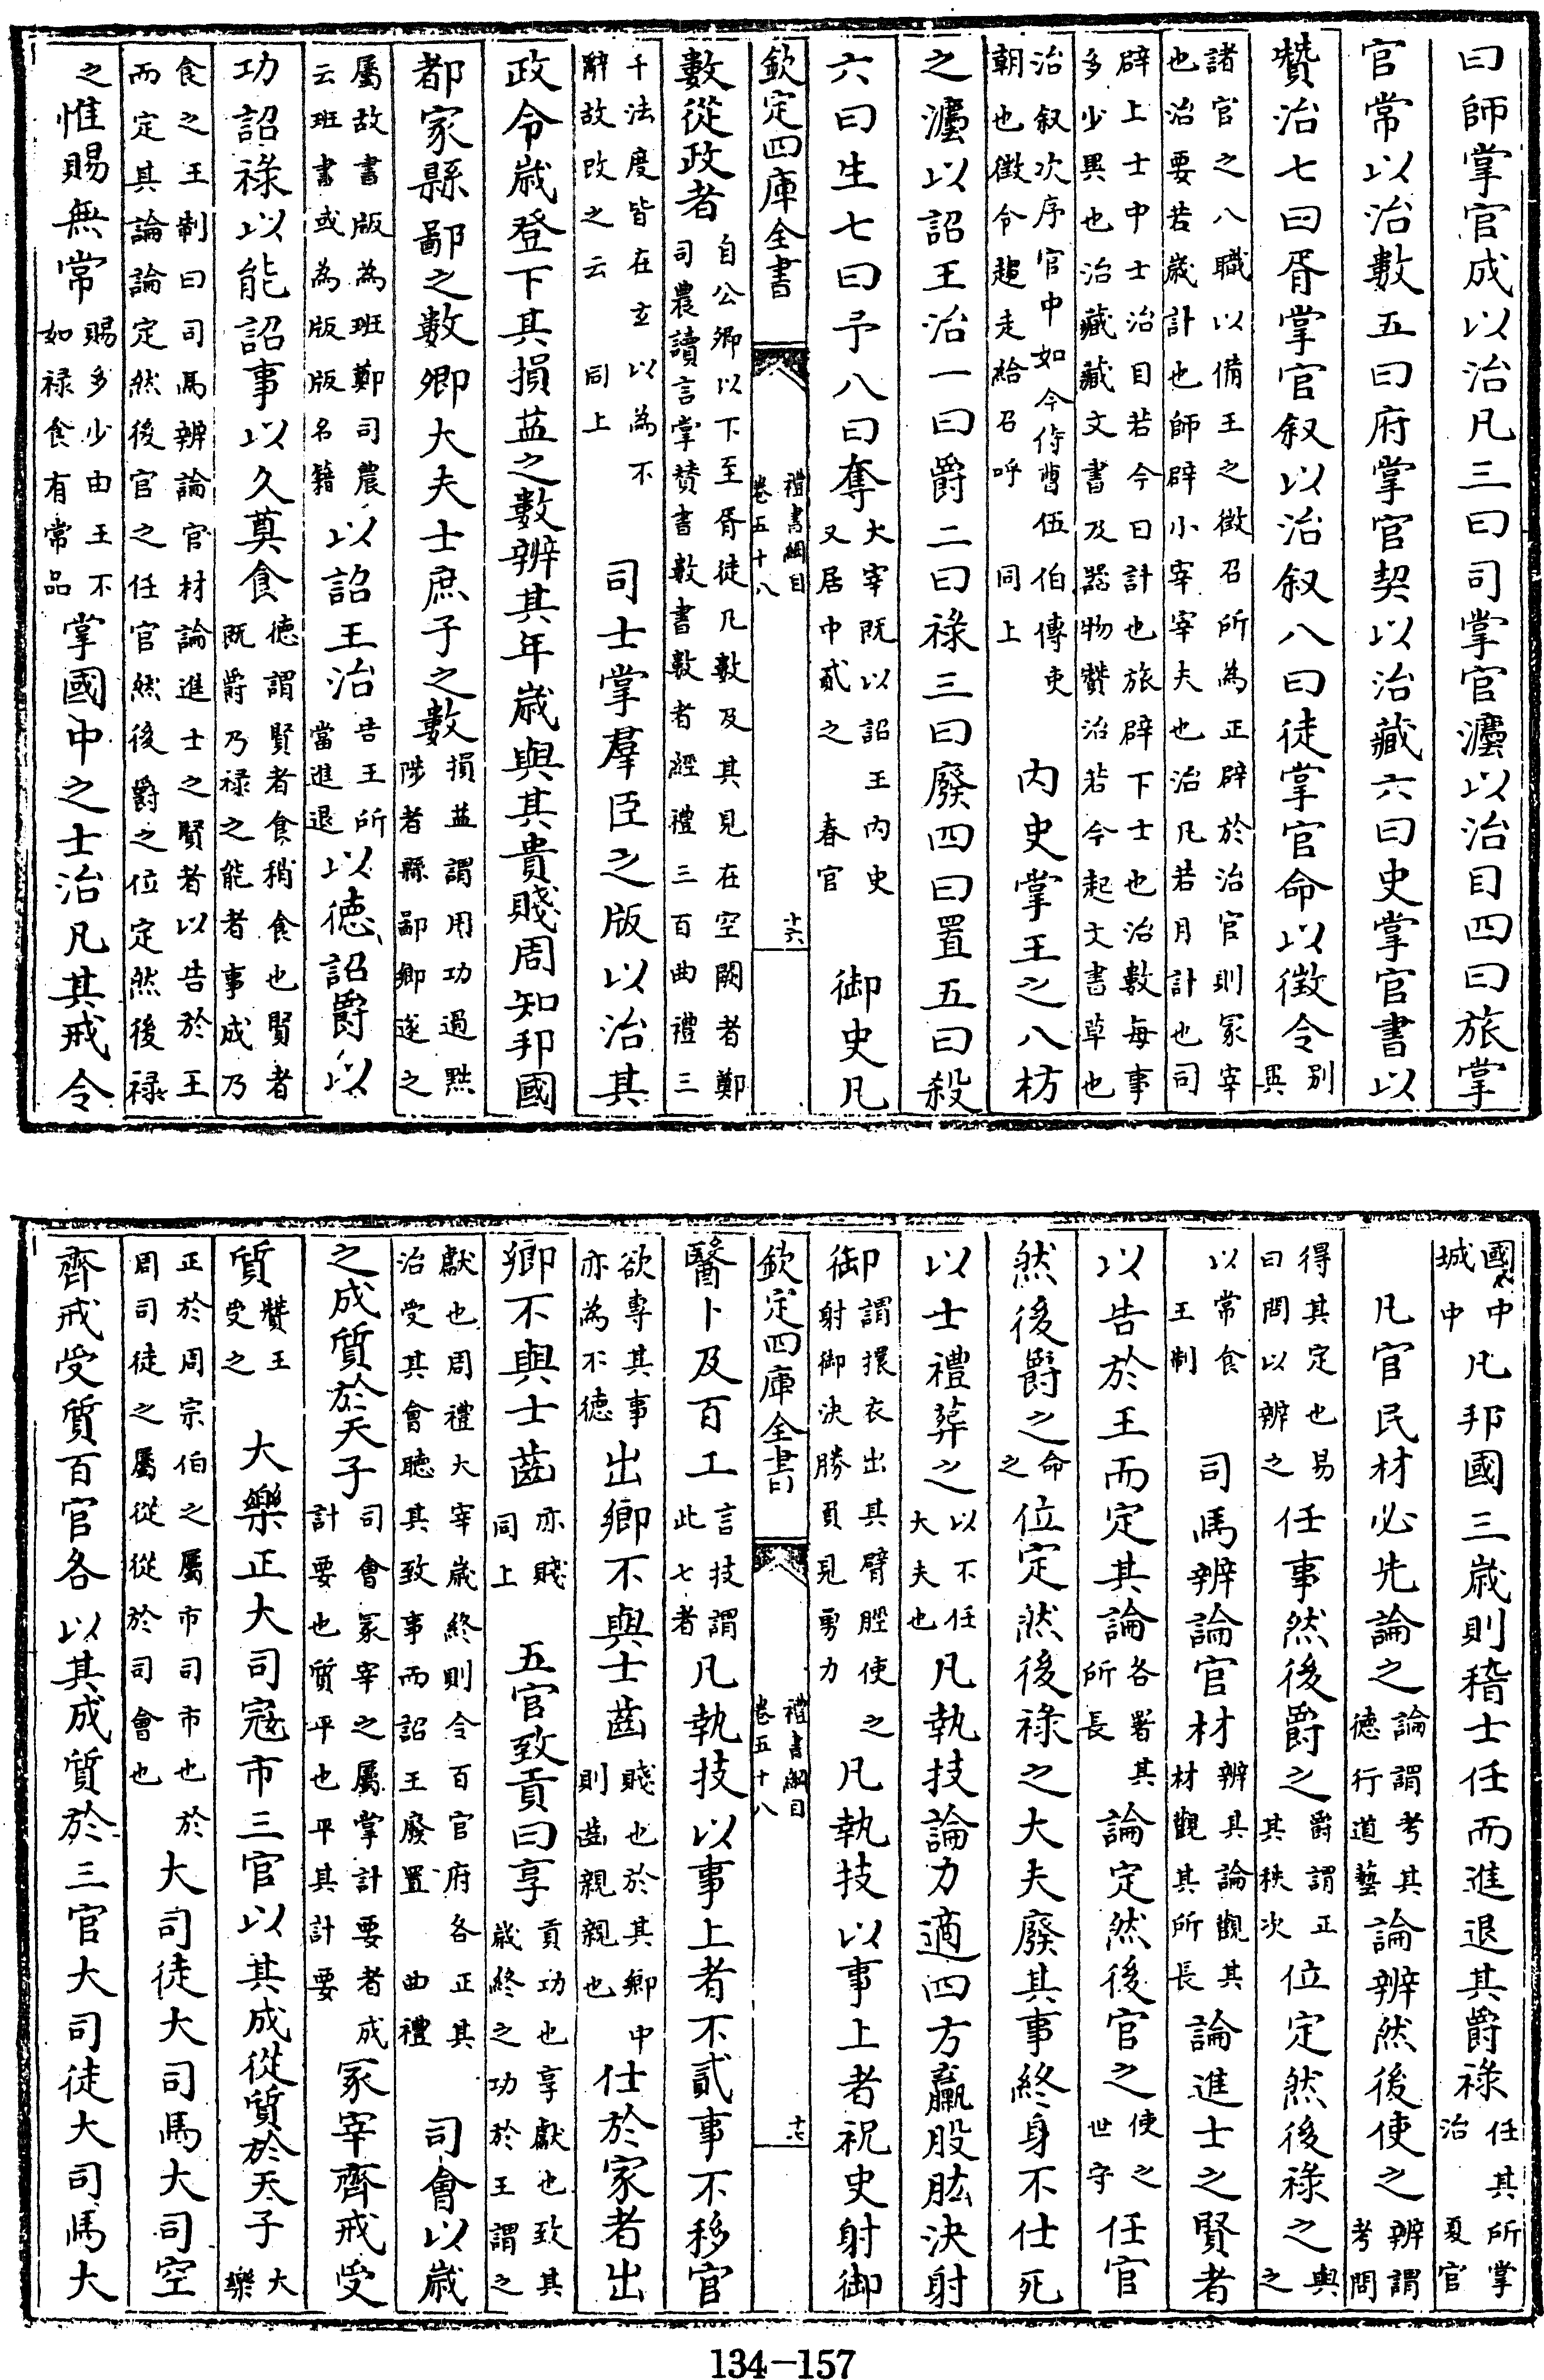 曰師掌官成以治凡三曰司掌官灋以治目四曰旅掌
官常以治數五曰府掌官契以治藏六曰史掌官書以
贊治七曰胥掌官叙以治叙八曰徒掌官命以徴令别異
諸官之八職以備王之徴召所為正辟於治官則冢宰
也治要若歳計也師辟小宰宰夫也治凡若月計也司
辟上士中士治目若今日計也旅辟下士也治數每事
多少異也治藏藏文書及器物贊治若今起文書草也
治叙次序官中如今侍曹伍伯傳吏
朝也徴令趨走給召呼 同上
内史掌王之八枋
之灋以詔王治一曰爵二曰祿三曰廢四曰置五曰殺
六曰生七曰予八曰奪
大宰既以詔王内史
又居中貳之 春官
御史凡
欽定四庫全書 禮書綱目 卷五十八 十六
數從政者
自公卿以下至胥徒凡數及其見在空闕者鄭
司農讀言掌賛書數書數者經禮三百曲禮三
千法度皆在玄以為不
辭故改之云 同上
司士掌羣臣之版以治其
政令歳登下其損益之數辨其年歳與其貴賤周知邦國
都家縣鄙之數卿大夫士庶子之數
損益謂用功過黜
陟者縣鄙鄉遂之
屬故書版為班鄭司農
云班書或為版版名籍
以詔王治
告王所
當進退
以徳詔爵以
功詔祿以能詔事以久奠食
徳謂賢者食稍食也賢者
既爵乃祿之能者事成乃
食之王制曰司馬辨論官材論進士之賢者以告於王
而定其論論定然後官之任官然後爵之位定然後祿
之惟賜無常
賜多少由王不
如祿食有常品
掌國中之士治凡其戒令
國中
城中
凡邦國三歳則稽士任而進退其爵祿
任其所掌
治 夏官
凡官民材必先論之
論謂考其
德行道藝
論辨然後使之
辨謂
考問
得其定也易
曰問以辨之
任事然後爵之
爵謂正
其秩次
位定然後祿之
與之
以常食
王制
司馬辨論官材
辨其論觀其
材觀其所長
論進士之賢者
以告於王而定其論
各署其
所長
論定然後官之
使之
世守
任官
然後爵之
命之
位定然後祿之大夫廢其事終身不仕死
以士禮葬之
以不任
大夫也
凡執技論力適四方臝股肱決射
御
謂擐衣出其臂脛使之
射御決勝負見勇力
凡執技以事上者祝史射御
欽定四庫全書 禮書綱目 卷五十八 十七
醫卜及百工
言技謂
此七者
凡執技以事上者不貳事不移官
欲専其事
亦為不徳
出鄉不與士齒
賤也於其鄉中
則齒親親也
仕於家者出
鄉不與士齒
亦賤
同上
五官致貢曰享
貢功也享獻也致其
歳終之功於王謂之
獻也周禮大宰歳終則令百官府各正其
治受其會聽其致事而詔王廢置 曲禮
司會以歳
之成質於天子
司會冢宰之屬掌計要者成
計要也質平也平其計要
冢宰齊戒受
質
贊王
受之
大樂正大司寇市三官以其成從質於天子
大樂
正於周宗伯之屬市司市也於
周司徒之屬從從於司會也
大司徒大司馬大司空
齊戒受質百官各以其成質於三官大司徒大司馬大
134—157